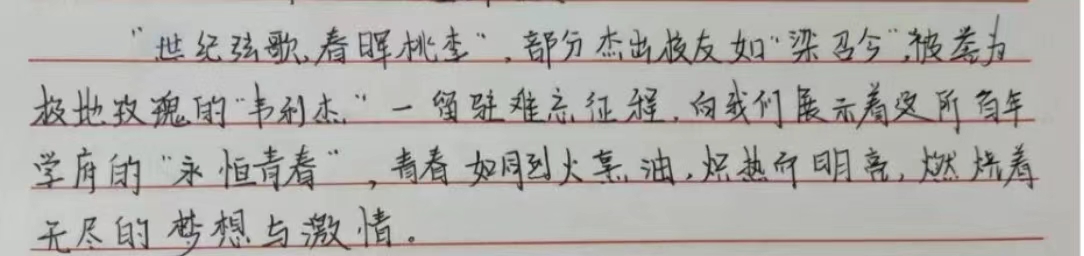 “世纪弦歌,春晖桃李”,部分杰出校友如“梁召今”,被誉为
极地玫瑰的“韦利杰”一留驻难忘征程,向我们展示着这所百年
学府的“永恒青春”,青春如同烈火烹油,炽热而明亮,燃烧着
无尽的梦想与激情。